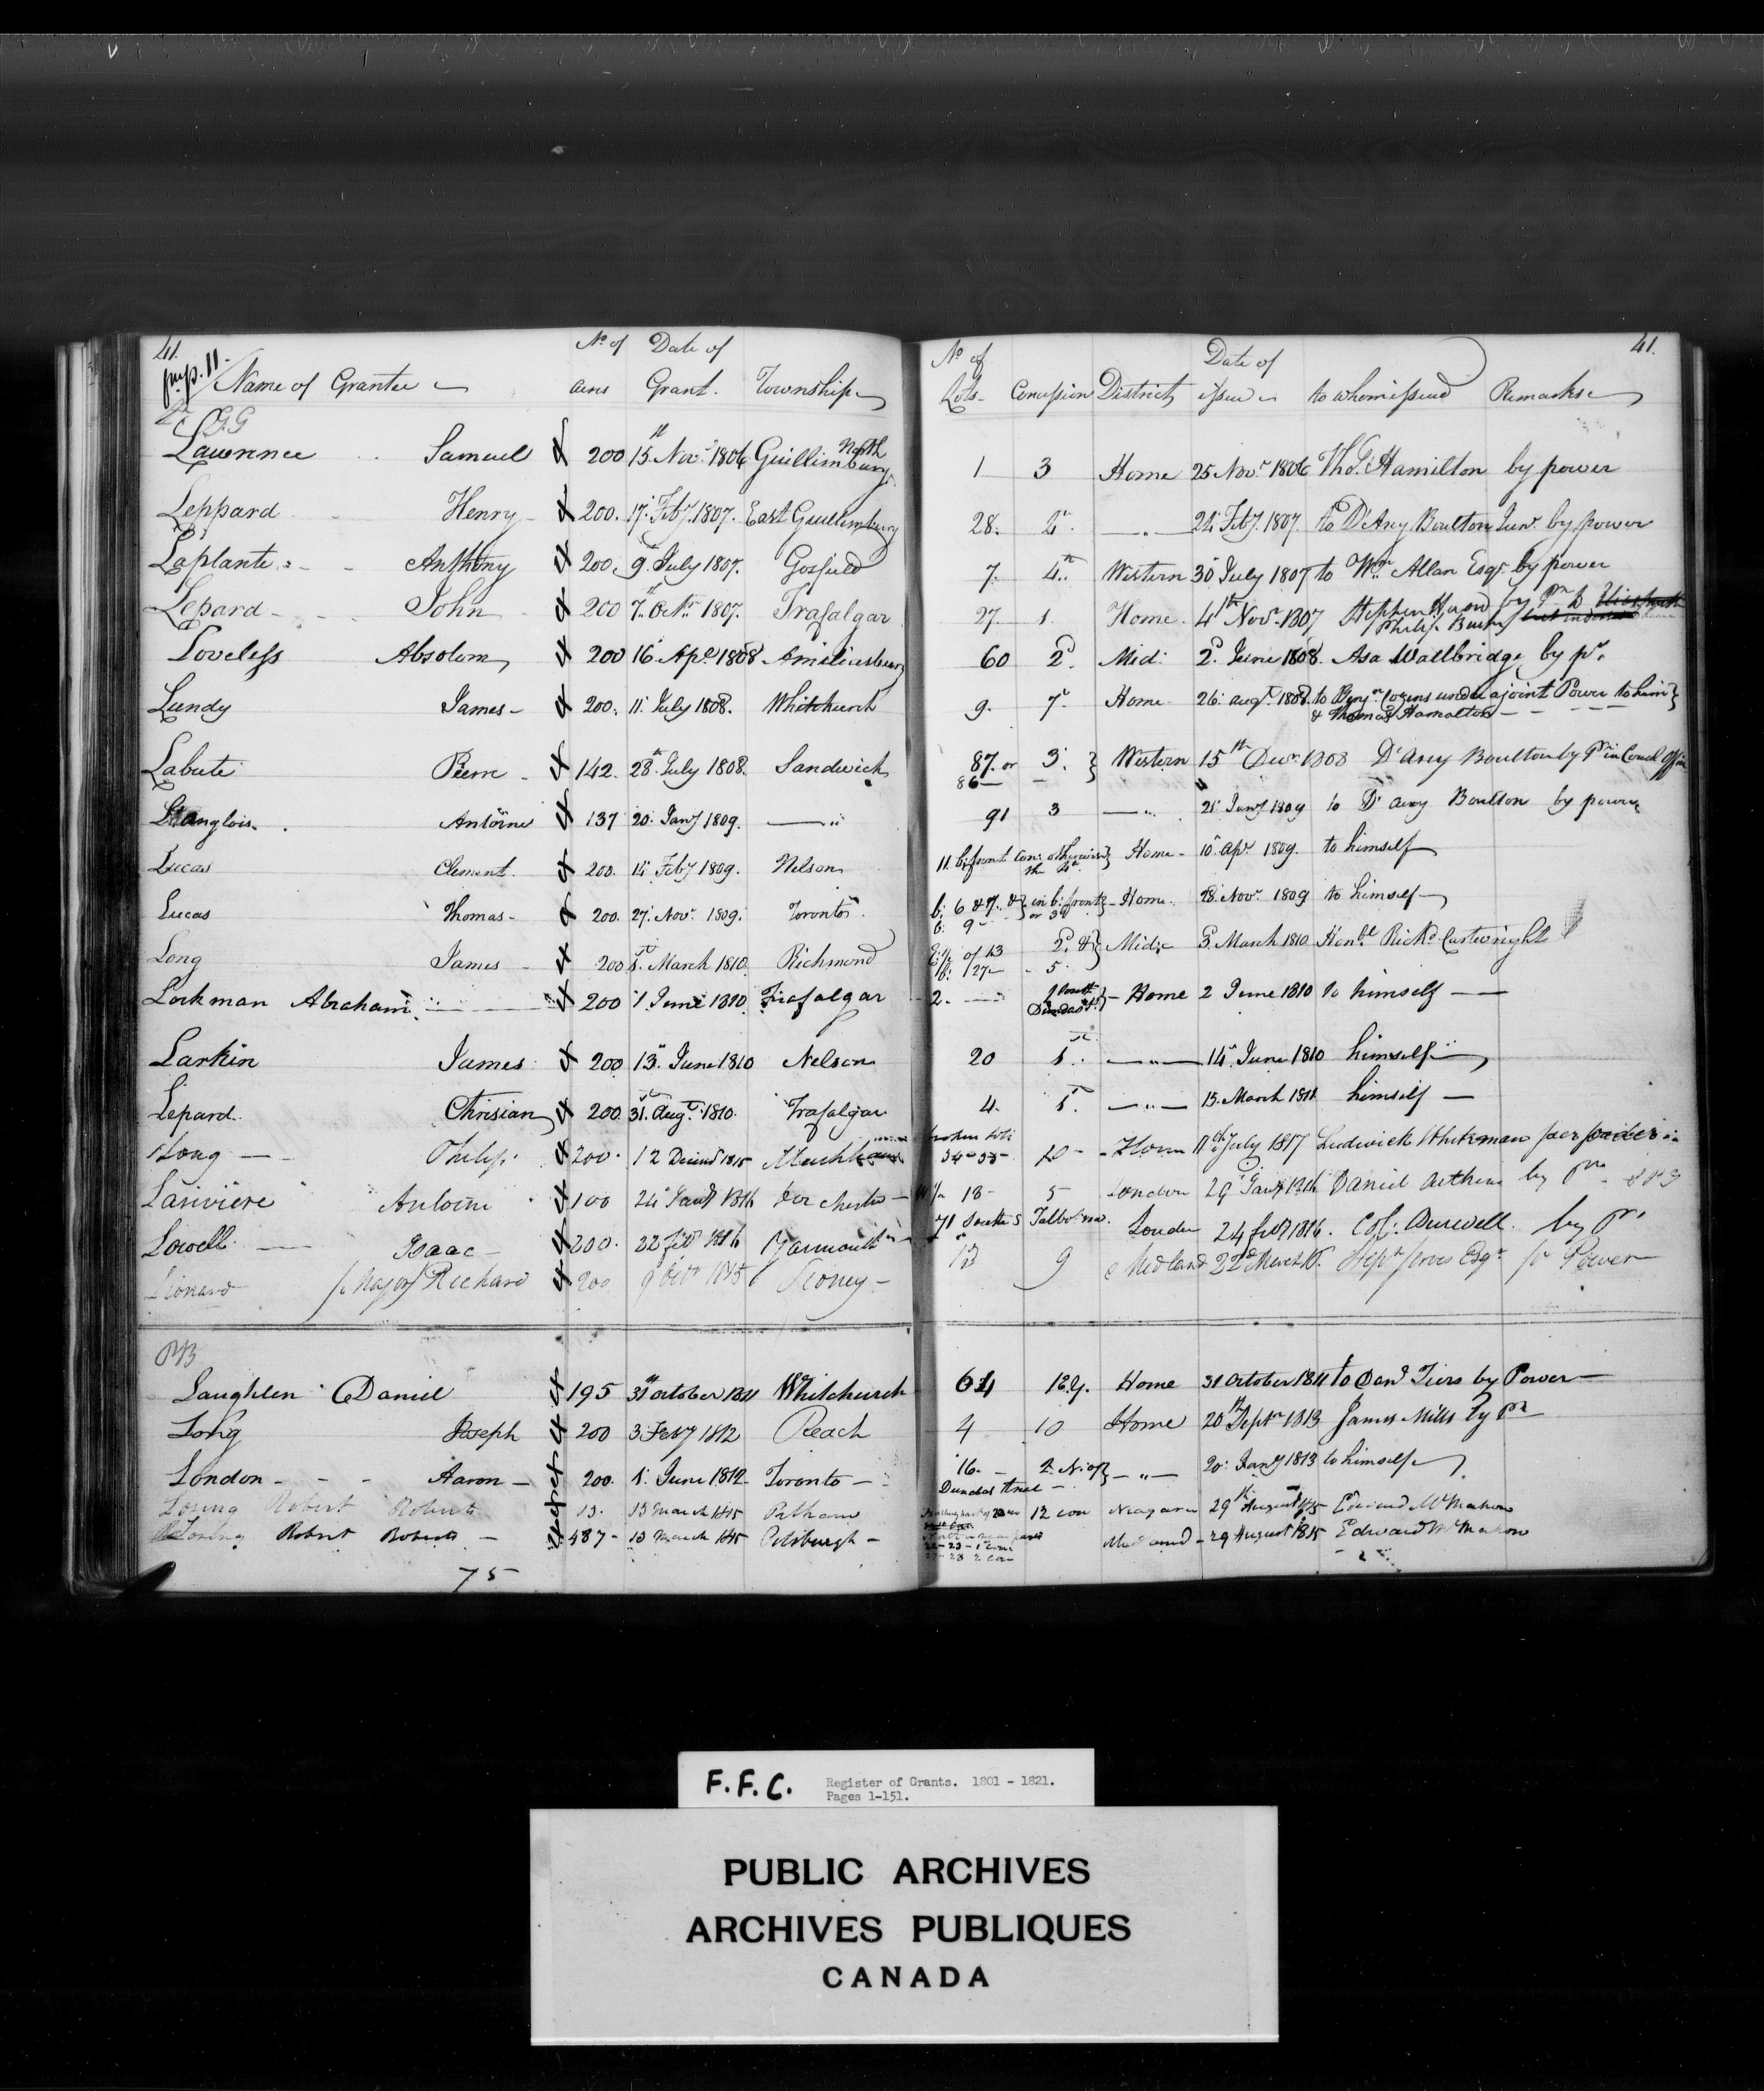 41. 41.
pr. p. 11.
No of Date of No of Date of
Name of Grantee acres Grant. Township Lots Concession District issue to whom issued Remarks
GG
Lawrence Samuel 200 15 Novr 1806 North Guillimbury 1 3 Home 25 Novr 1806 Thos. Hamilton by power
Leppard Henry 200. 17 Feby 1807. East Guillimbury 28. 2d. —"— 24 Feby 1807 to D'Arcy Boulton Junr. by power
Laplante Anthony 200. 9 July 1807. Gosfield 7. 4th Western 30 July 1807 to Wm Allan Esqr by power
Lepard John 200 7 Octr 1807. Trafalgar 27. 1. Home 4th Novr 1807 Stephen by Pr
Philip
Loveless Absolom 200 16 Apl 1808 Ameliasburg 60 2d. Mid: 2d. June 1808. Asa Wallbridge by pr.
Lundy James 200. 11 July 1808. Whitchurch 9. 7 Home 26 augt 1808. to Benjn Cozens under a joint Power to him
& Thomas Hamalton
Labute Pierre 142. 28th July 1808. Sandwich 87. or 3. Western 15th Decr 1808 D'arcy Boulton by Pr in Council Office
86
Langlois Antoine 137 20 Jany 1809. —"— 91 3 —"— 21 Jany 1809 to D'arcy Boulton by power
Lucas Clement. 200. 14 Feby 1809. Nelson 11. b; front Con: otherwise Home 10 apr 1809. to himself
the 4th
Lucas Thomas 200. 27 Novr 1809. Toronto b; 6 & 7. & in b; front Home 28 Novr 1809 to himself
b. 9 or 3d
Long James 200 1st March 1810 Richmond E½ of 13 2d. & Mid: 5. March 1810 Honbl Richd Cartwright
12 5
Lockman Abraham 200 1 June 1810 Trafalgar 2. 1 South Home 2 June 1810 to himself
Dundas St.
Larkin James 200 13 June 1810 Nelson 20 1st. —"— 14 June 1810 himself
Lepard. Chrisian 200 31st Augt 1810. Trafalgar 4. 1st. —"— 13. March 1811 himself
Long Philip 200. 12 Decemb 1815 Markham broken lots
34-35 10 Home 11th July 1817 Ludwick per
Lariviere Antoine 100 24 Jany 1816 Dorchester 18 5 London 29 Jany 1816 Daniel by Pr
Lowell Isaac 200. 22 Feb 1816 Yarmouth 71 South Talbot road London 24 feby 1816. Col: Burwell. by Pr
Leonard Major Richard 200 9 1815 13 9 Midland 22d March 16. Esqr pr Power
PB
Laughlen Daniel 195 31st October 1811 Whitchurch 64 1E.Y. Home 31 October 1811 to Danl Tiers by Power
Long Joseph 200 3 Feby 1812 Reach 4 10 Home 20th Septr 1813 James Mills by Pr
London Aaron 200. 1 June 1812 Toronto 16. 2 N. of —"— 20 Jany 1813 to himself
Dundas Street
Loring Robert Roberts 13. 13 March 1815 Pelham 12 con Niagara 29th August 1815 Edward McMahon
Loring Robert Roberts 487 13 March 1815 Pittsburgh 22-23-1 con Midland 29 August 1815 Edward McMahon
2 con
75
F.F.C. Register of Grants. 1801 - 1821.
Pages 1-151.
PUBLIC ARCHIVES
ARCHIVES PUBLIQUES
CANADA